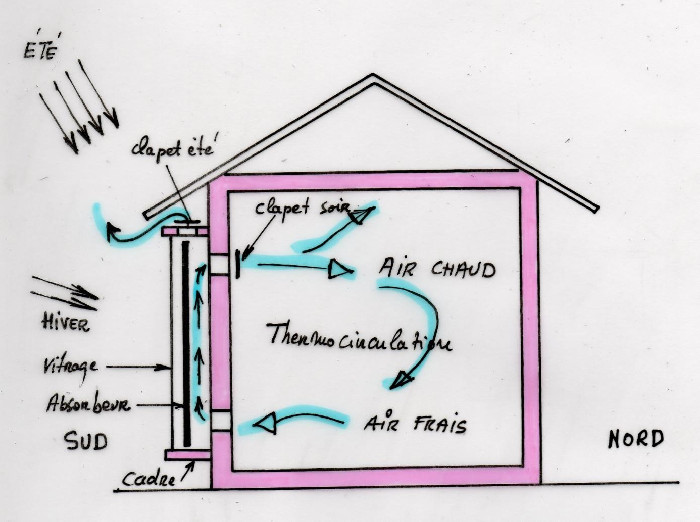 ÉTÉ
clapet été
clapet soir
AIR CHAUD
HIVER
Thermocirculation
Vitrage
Absorbeur
AIR FRAIS
SUD
NORD
Cadre